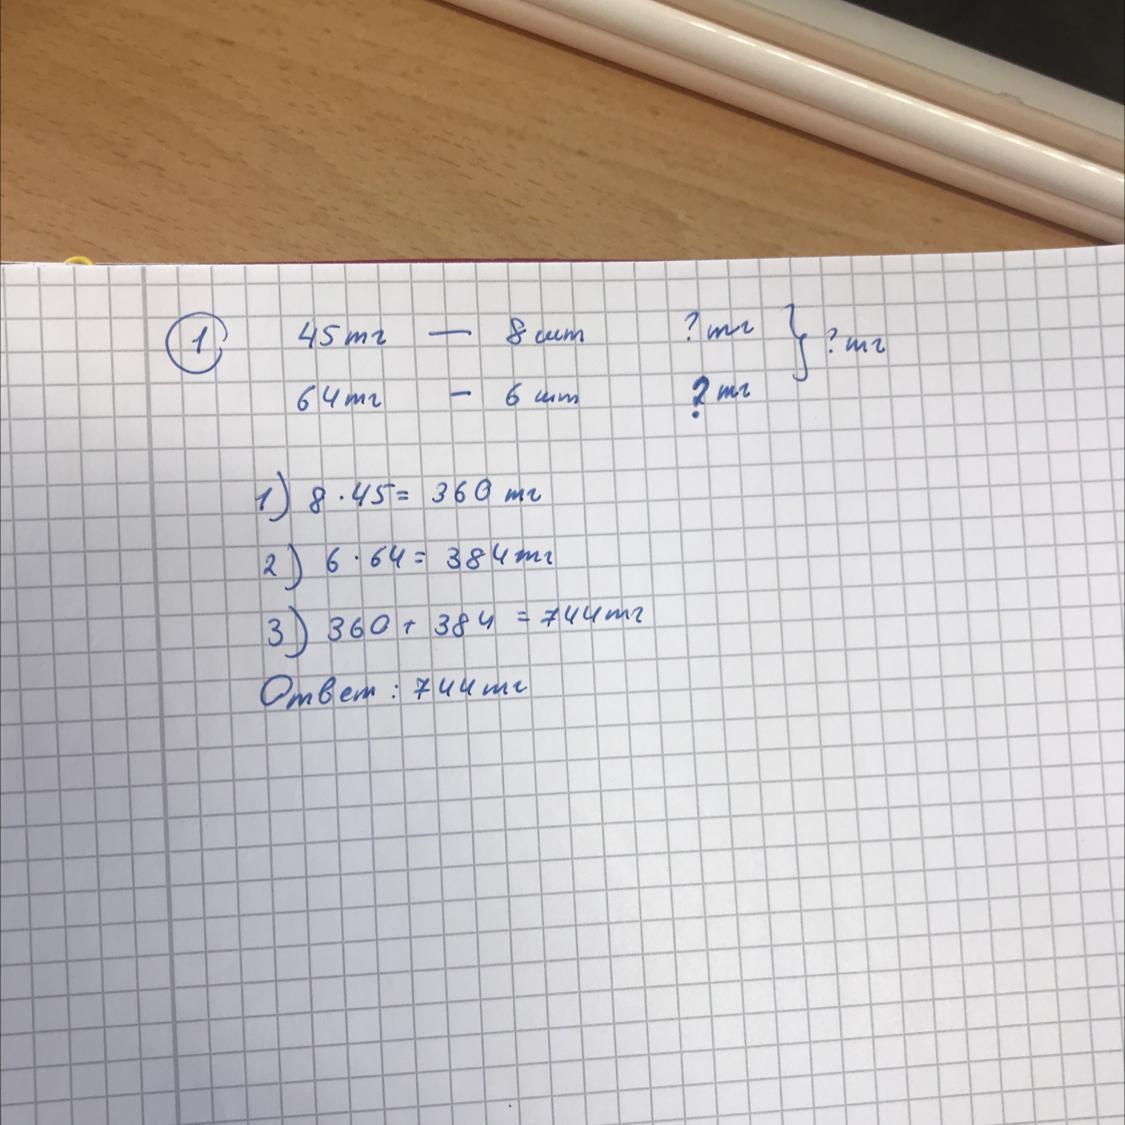 1 45тг — 8 шт ?тг } ?тг
64тг - 6 шт ?тг
1) 8 · 45 = 360 тг
2) 6 · 64 = 384тг
3) 360 + 384 = 744тг
Ответ : 744тг